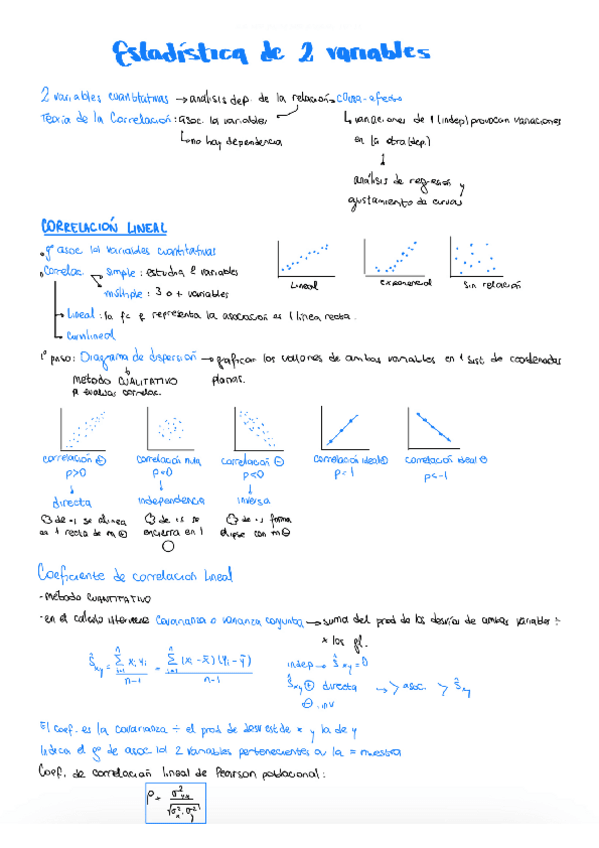 Estadística de 2 variables
2 variables cuantitativas → análisis dep. de la relación → causa-efecto
Teoría de la Correlación: asoc. la variables
↳ variaciones de 1 (indep) provocan variaciones
↳ no hay dependencia
en la otra (dep.)
↓
análisis de regresión y
ajustamiento de curvas
CORRELACIÓN LINEAL
gº asoc. variables cuantitativas
Correlac. simple: estudia 2 variables
múltiple: 3 o + variables
Lineal
exponencial
Sin relación
→ Lineal: la fc q representa la asociación es 1 línea recta.
→ Curvilineal
1º paso: Diagrama de dispersión → graficar los valores de ambas variables en 1 sist. de coordenadas
planas.
método CUALITATIVO
p. evaluar correlac.
correlación ⊕
correlación nula
correlación ⊖
correlación ideal ⊕
correlación ideal ⊖
ρ>0
ρ=0
ρ<0
ρ=1
ρ=-1
directa
independencia
inversa
de ·s se alinea
de ·s se
de ·s forma
en 1 recta de m ⊕
encierra en 1
elipse con m ⊖
Coeficiente de correlación lineal
- método CUANTITATIVO
- en el cálculo interviene Covarianza o varianza conjunta → suma del prod de los desvíos de ambas variables ÷
x los gl.
Ŝxy = Σ xi yi / n-1 = Σ (xi - x̄)(yi - ȳ) / n-1
indep → Ŝxy = 0
Ŝxy ⊕ directa → > asoc. > Ŝxy
⊖ inv
El coef. es la covarianza ÷ el prod de desv est de x y la de y
Indica el gº de asoc. 2 variables pertenecientes a la = muestra
Coef. de correlación lineal de Pearson poblacional:
ρ = σ²yx / √σ²x · σ²y